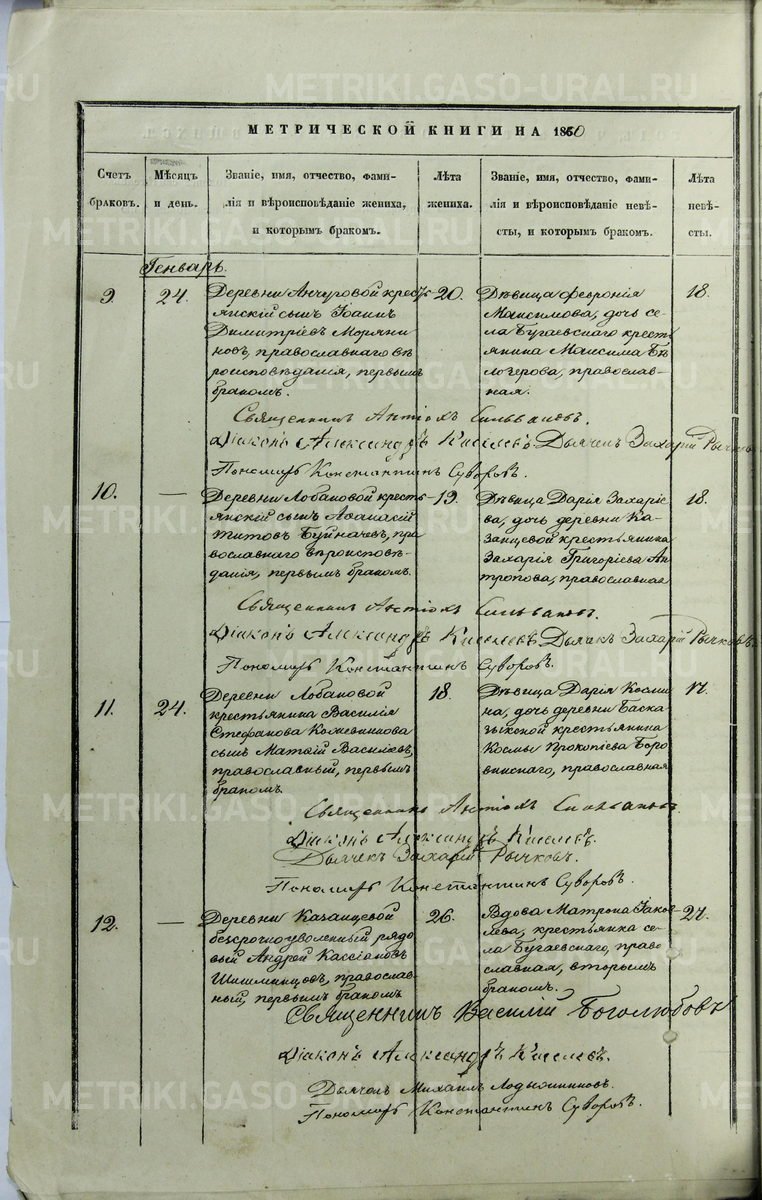 МЕТРИЧЕСКОЙ КНИГИ НА 1860
Счетъ браковъ.
Мѣсяцъ и день.
Званіе, имя, отчество, фами-
лія и вѣроисповѣданіе жениха,
и которымъ бракомъ.
Лѣта жениха.
Званіе, имя, отчество, фами-
лія и вѣроисповѣданіе невѣ-
сты, и которымъ бракомъ.
Лѣта невѣ-
сты.
Генварь.
9.
24.
Деревни Анчуговой кресть-
янскій сынъ Іоаннъ
Димитріевъ
православнаго вѣ
роисповѣданія, первымъ
бракомъ.
20.
Дѣвица Феѵронія
Максимова, дочь се-
ла Бугаевскаго кресть
янина Максима Бѣ
лозерова, православ-
ная.
18.
Священникъ Антіохъ Сильвановъ.
Діаконъ Александръ Киселевъ. Дьячекъ Захарій Рычковъ
Пономарь Константинъ Суворовъ.
10.
—
Деревни Лобановой кресть-
янскій сынъ Аѳанасій
Титовъ пра
вославнаго вѣроисповѣ-
данія, первымъ бракомъ.
19.
Дѣвица Дарія Захаріе-
ва, дочь деревни Ка-
занцевой крестьянина
Захарія Григоріева Ан
тропова, православная
18.
Священникъ Антіохъ Сильвановъ.
Діаконъ Александръ Киселевъ. Дьячекъ Захарій Рычковъ.
Пономарь Константинъ Суворовъ.
11.
24.
Деревни Лобановой
крестьянина Василія
Стефанова Кожевникова
сынъ Матѳій Васильевъ,
православный, первымъ
бракомъ.
18.
Дѣвица Дарія Косми-
на, дочь деревни Баска
зыковой крестьянина
Космы Прокопіева Боро
винскаго, православная
17.
Священникъ Антіохъ Сильвановъ.
Діаконъ Александръ Киселевъ.
Дьячекъ Захарій Рычковъ.
Пономарь Константинъ Суворовъ.
12.
—
Деревни Казанцевой
безсрочноуволенный рядо
вый Андрей Кассіановъ
православ-
ный, первымъ бракомъ
26.
Вдова Матрона Іаков
лева, крестьянка се-
ла Бугаевскаго, право
славная, вторымъ
бракомъ.
27.
Священникъ Василій Боголюбовъ
Діаконъ Александръ Киселевъ.
Дьячекъ Михаилъ
Пономарь Константинъ Суворовъ.
METRIKI.GASO-URAL.RU